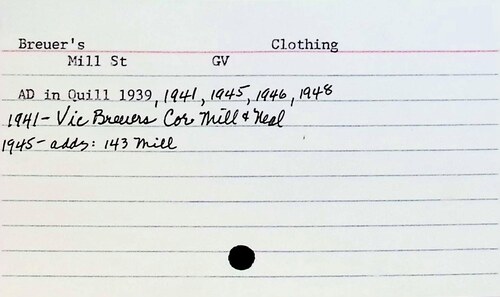 Breuer's Clothing
Mill St GV
AD in Quill 1939, 1941, 1945, 1946, 1948
1941- Vic Breuers Cor Mill & Neal
1945- addy: 143 Mill